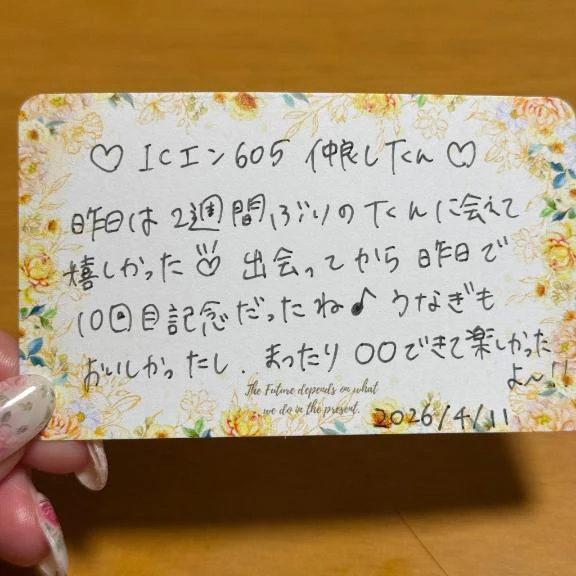 ♡ ICエン605 仲良しTくん ♡
昨日は2週間ぶりのTくんに会えて
嬉しかった♡ 出会ってから昨日で
10回目記念だったね♪ うなぎも
おいしかったし、まったり〇〇できて楽しかった
よ〜!!
The Future depends on what
we do in the present.
2026/4/11